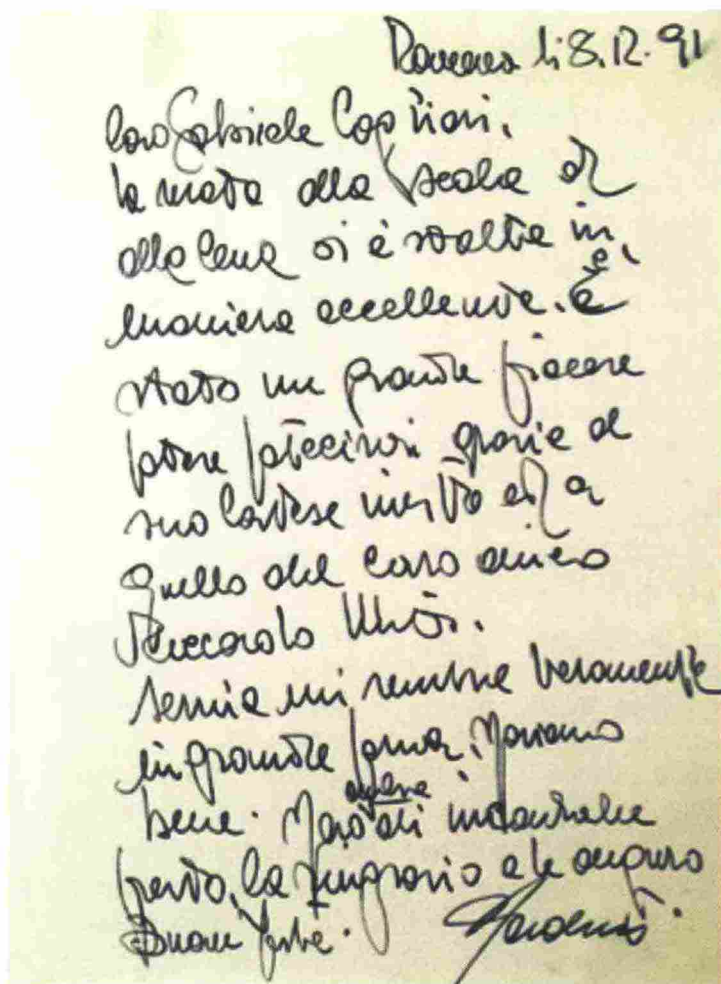 Ravenna li 8.12.91
Caro Gabriele Cagliari,
la serata alla Scala ed
alla Cena si è svolta in
maniera eccellente. È
stato un grande piacere
poter grazie al
suo Cortese invito ed a
quello del caro amico
Riccardo Muti.
mi sembra veramente
in grande forma,
bene. incontrarla
presto, la ringrazio e le auguro
Buone feste.